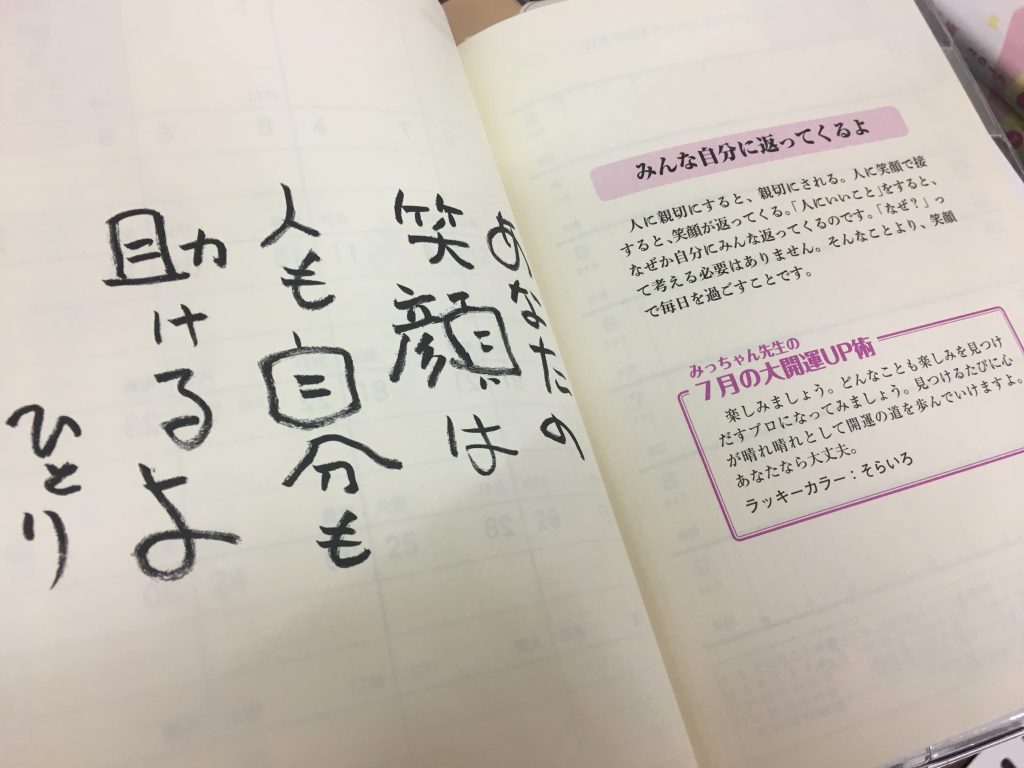 あなたの
笑顔は
人も自分も
助けるよ
ひとり
みんな自分に返ってくるよ
人に親切にすると、親切にされる。人に笑顔で接
すると、笑顔が返ってくる。「人にいいこと」をすると、
なぜか自分にみんな返ってくるのです。「なぜ?」っ
て考える必要はありません。そんなことより、笑顔
で毎日を過ごすことです。
みっちゃん先生の
7月の大開運UP術
楽しみましょう。どんなことも楽しみを見つけ
だすプロになってみましょう。見つけるたびに心
が晴れ晴れとして開運の道を歩んでいけますよ。
あなたなら大丈夫。
ラッキーカラー:そらいろ